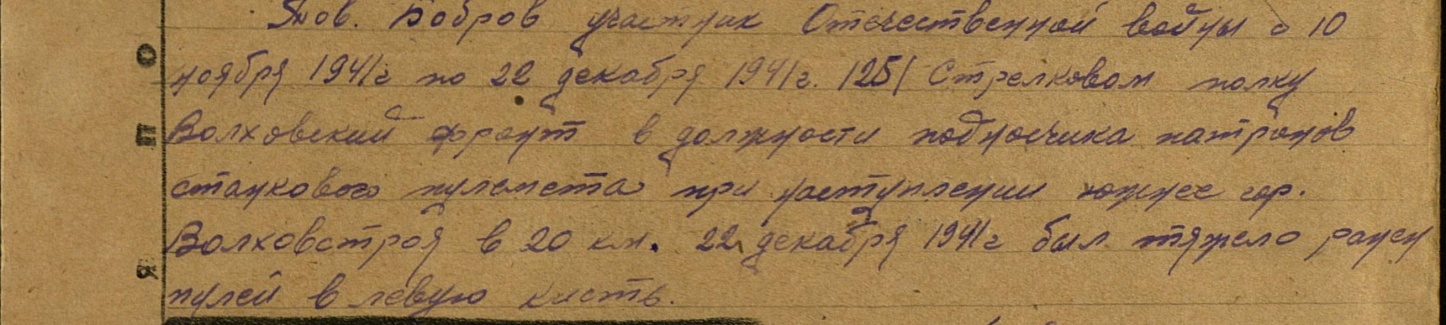 Тов. Бобров участник Отечественной войны с 10
ноября 1941г по 22 декабря 1941г. 1251 Стрелковом полку
Волховский фронт в должности подносчика патронов
станкового пулемета при наступлении южнее гор.
Волховстроя в 20 км. 22 декабря 1941г был тяжело ранен
пулей в левую кисть.
О
П
Я